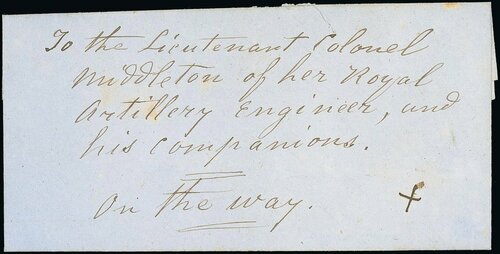 To the Lieutenant Colonel
Middleton of her Royal
Artillery Engineer, and
his Companions.
On the way.